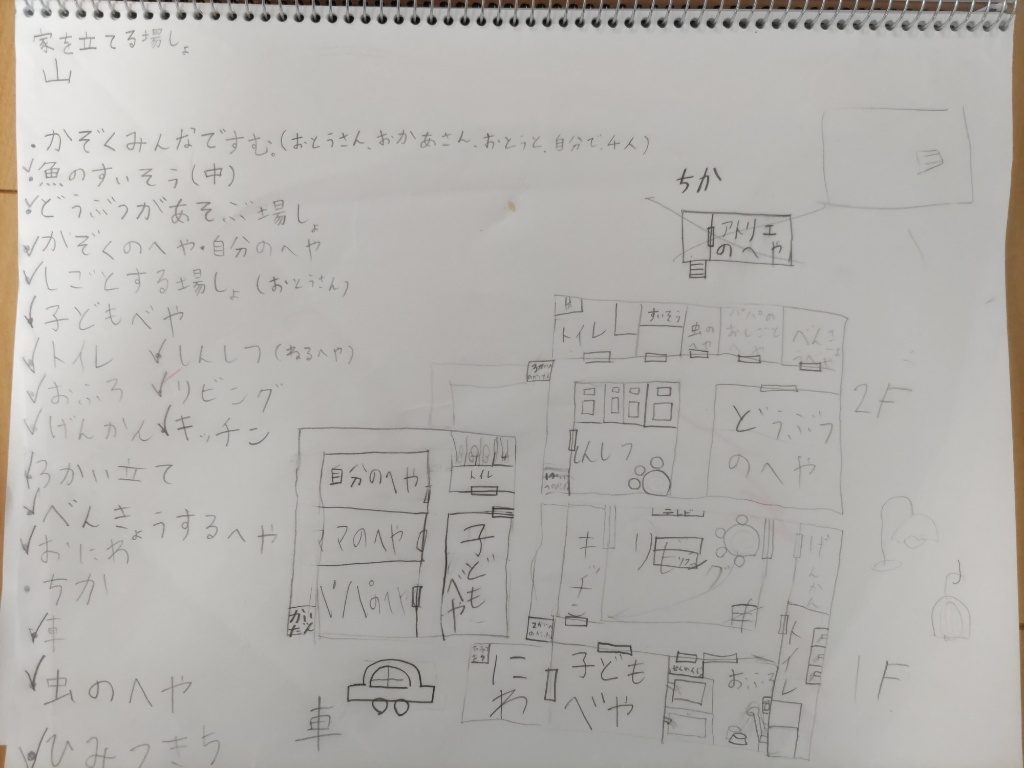 家を立てる場しょ
山
・かぞくみんなですむ。(おとうさん、おかあさん、おとうと、自分で、4人)
魚のすいそう(中)
どうぶつがあそぶ場しょ
かぞくのへや・自分のへや
しごとする場しょ(おとうさん)
子どもべや
トイレ しんしつ(ねるへや)
おふろ リビング
げんかん キッチン
3かい立て
べんきょうするへや
おにわ
・ちか
車
虫のへや
ひみつきち
ちか
アトリエ
のへや
トイレ
すいそう
虫の
へや
パパの
おしごと
べんきょ
2F
しんしつ
どうぶつ
のへや
自分のへや
トイレ
ママのへや
子ども
べや
パパのへや
かい
だん
テレビ
キッチン
リビング
げんかん
トイレ
にわ
子ども
べや
せんめん
おふろ
1F
車